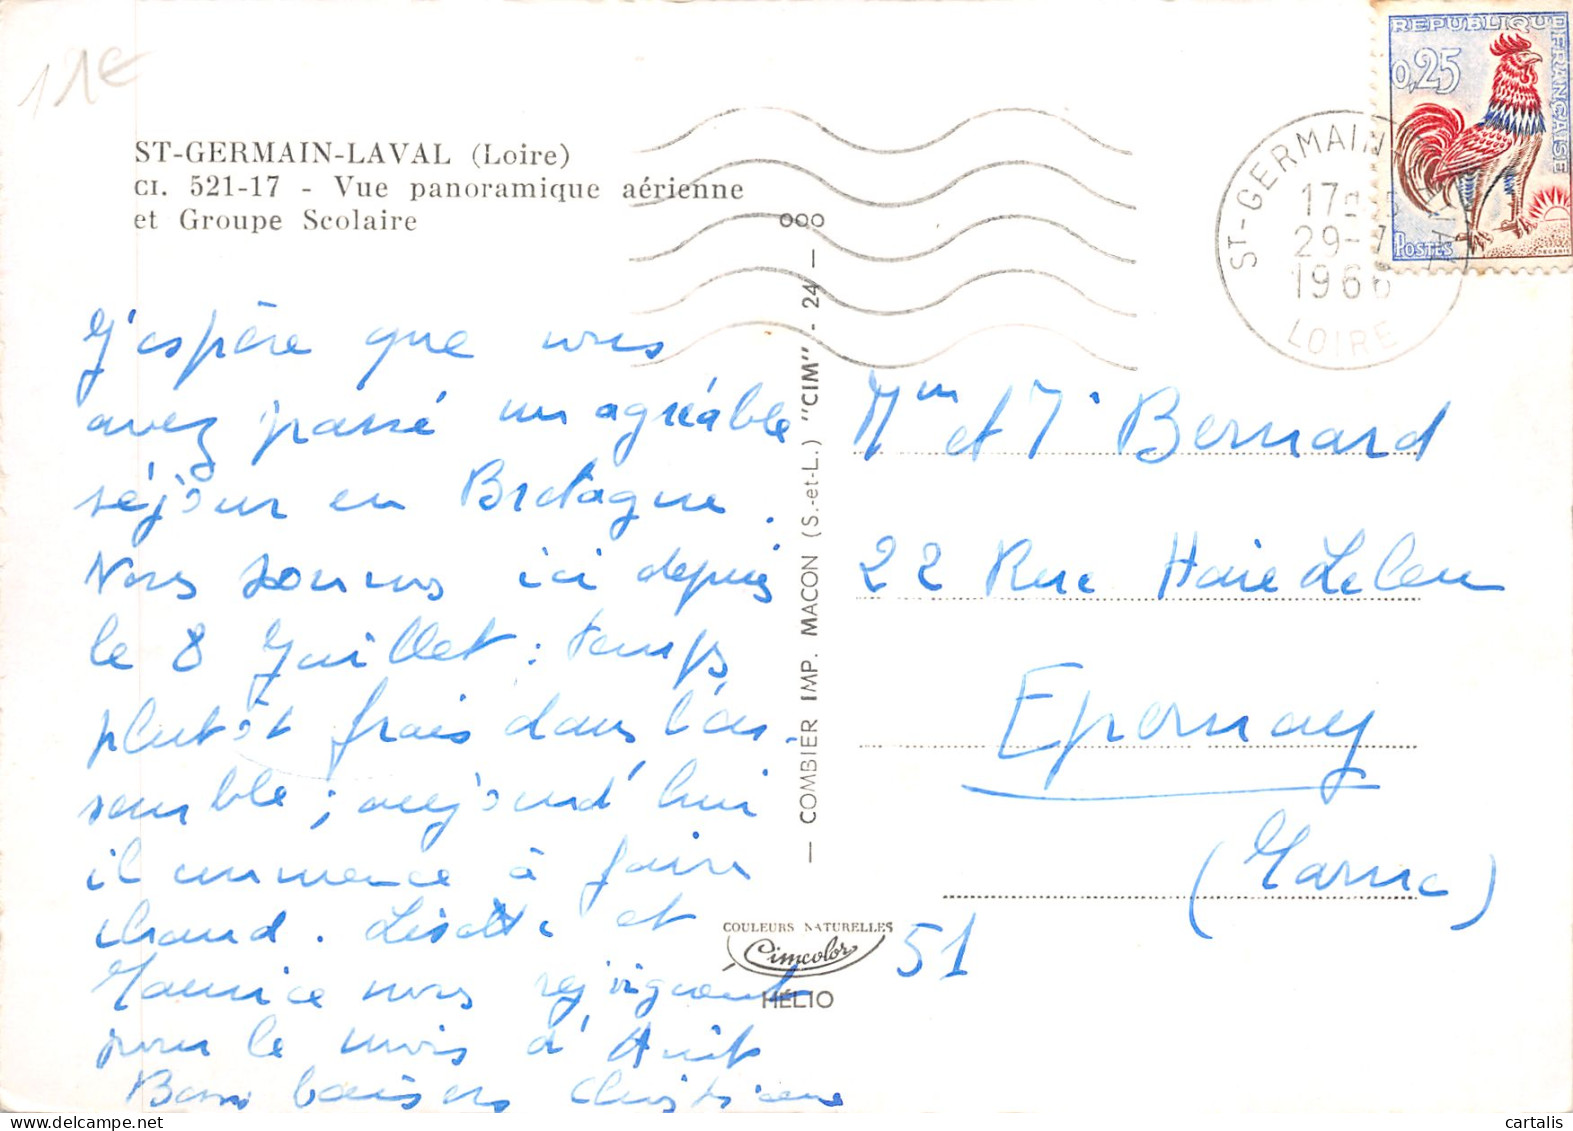 11€
ST-GERMAIN-LAVAL (Loire)
CI. 521-17 - Vue panoramique aérienne
et Groupe Scolaire
J'espère que vous
avez passé un agréable
séjour en Bretagne.
Nous sommes ici depuis
le 8 Juillet : temps
plutôt frais dans l'en-
semble ; aujourd'hui
il commence à faire
chaud. Lisette et
Maurice nous rejoignent
pour le mois d'Août
Bons baisers Christiane
— COMBIER IMP. MACON (S.-et-L.) "CIM" - 24 —
COULEURS NATURELLES
Cimcolor
HÉLIO
REPUBLIQUE FRANÇAISE
0,25
POSTES
DECARIS
ST-GERMAIN LAVAL
17
29-7
1966
LOIRE
Mme et Mr Bernard
22 Rue Haie Leleu
Epernay
(Marne)
51
cartalis
www.delcampe.net